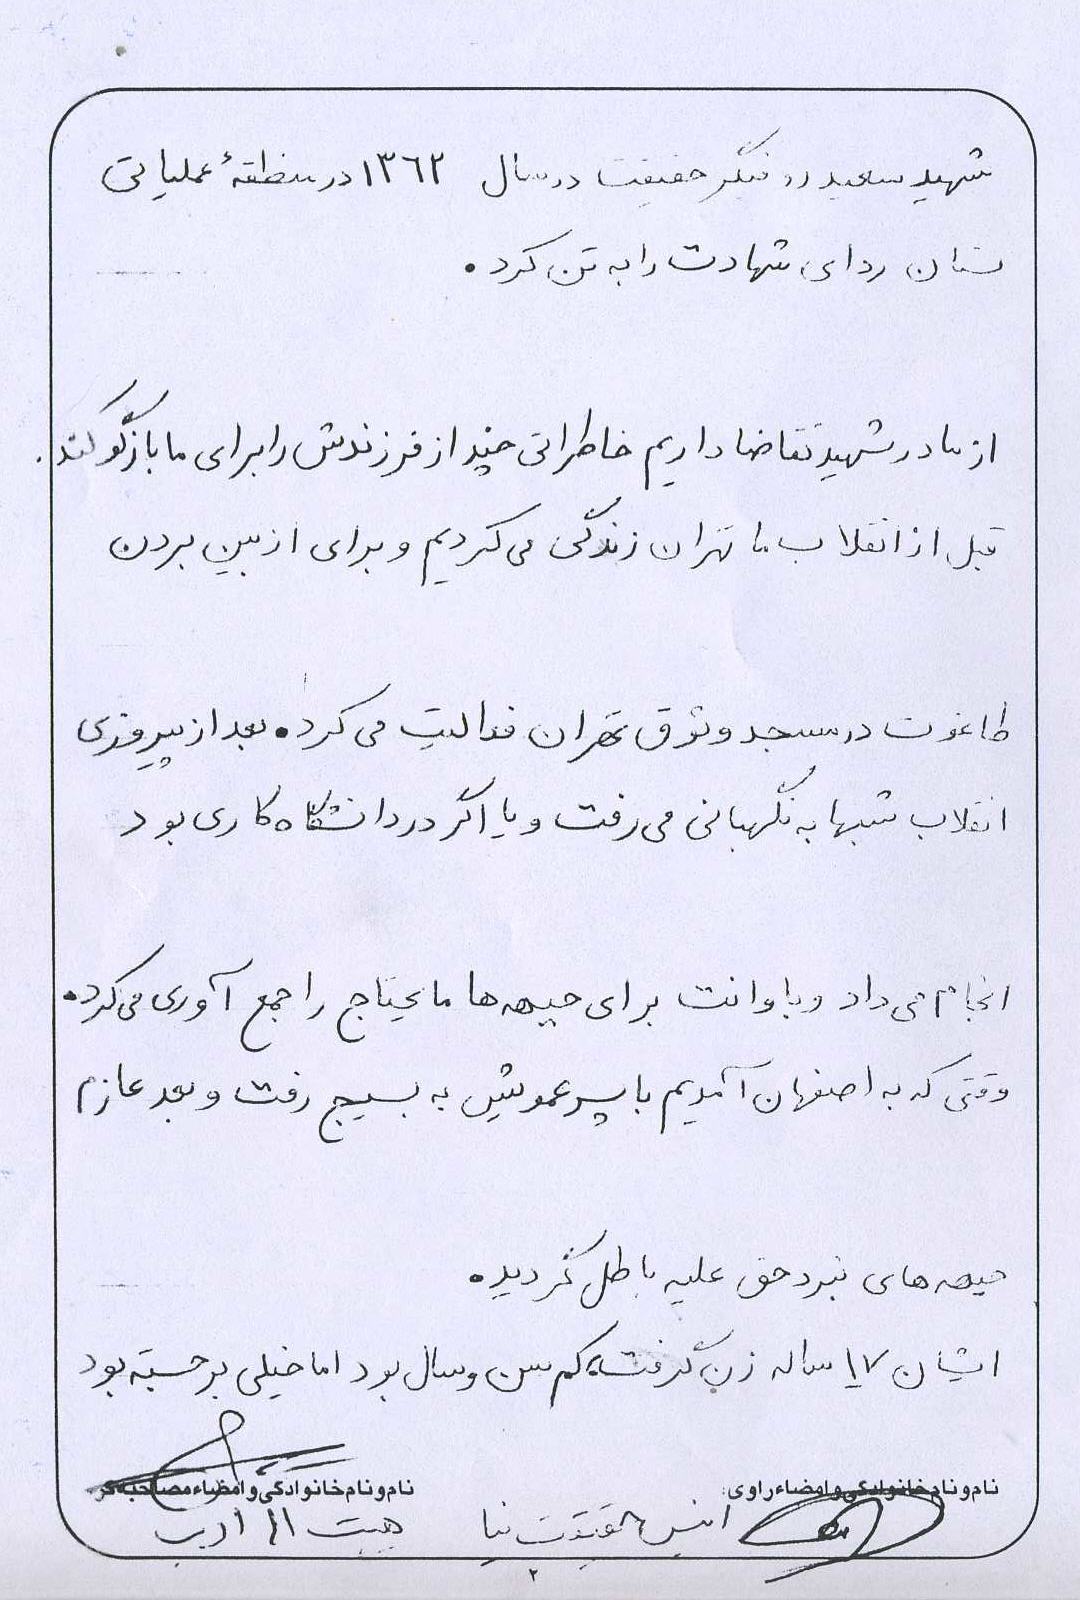 شهید سعید روفیگر حقیقت در سال ١٣٦٢ در منطقهٔ عملیاتی
ردای شهادت را به تن کرد.
از مادر شهید تقاضا داریم خاطراتی چند از فرزندش را برای ما بازگو کند.
قبل از انقلاب ما تهران زندگی می‌کردیم و برای از بین بردن
طاغوت در مسجد وثوق تهران فعالیت می‌کرد. بعد از پیروزی
انقلاب شبها به نگهبانی می‌رفت و یا اگر در دانشگاه کاری بود
انجام می‌داد و با وانت برای جبهه‌ها مایحتاج را جمع آوری می‌کرد.
وقتی که به اصفهان آمدیم با پسرعمویش به بسیج رفت و بعد عازم
جبهه‌های نبرد حق علیه باطل گردید.
ایشان ١٧ ساله زن گرفت، کم سن و سال بود اما خیلی برجسته بود
نام و نام خانوادگی و امضاء راوی: نام و نام خانوادگی و امضاء مصاحبه‌گر
حقیقت نیا
٢